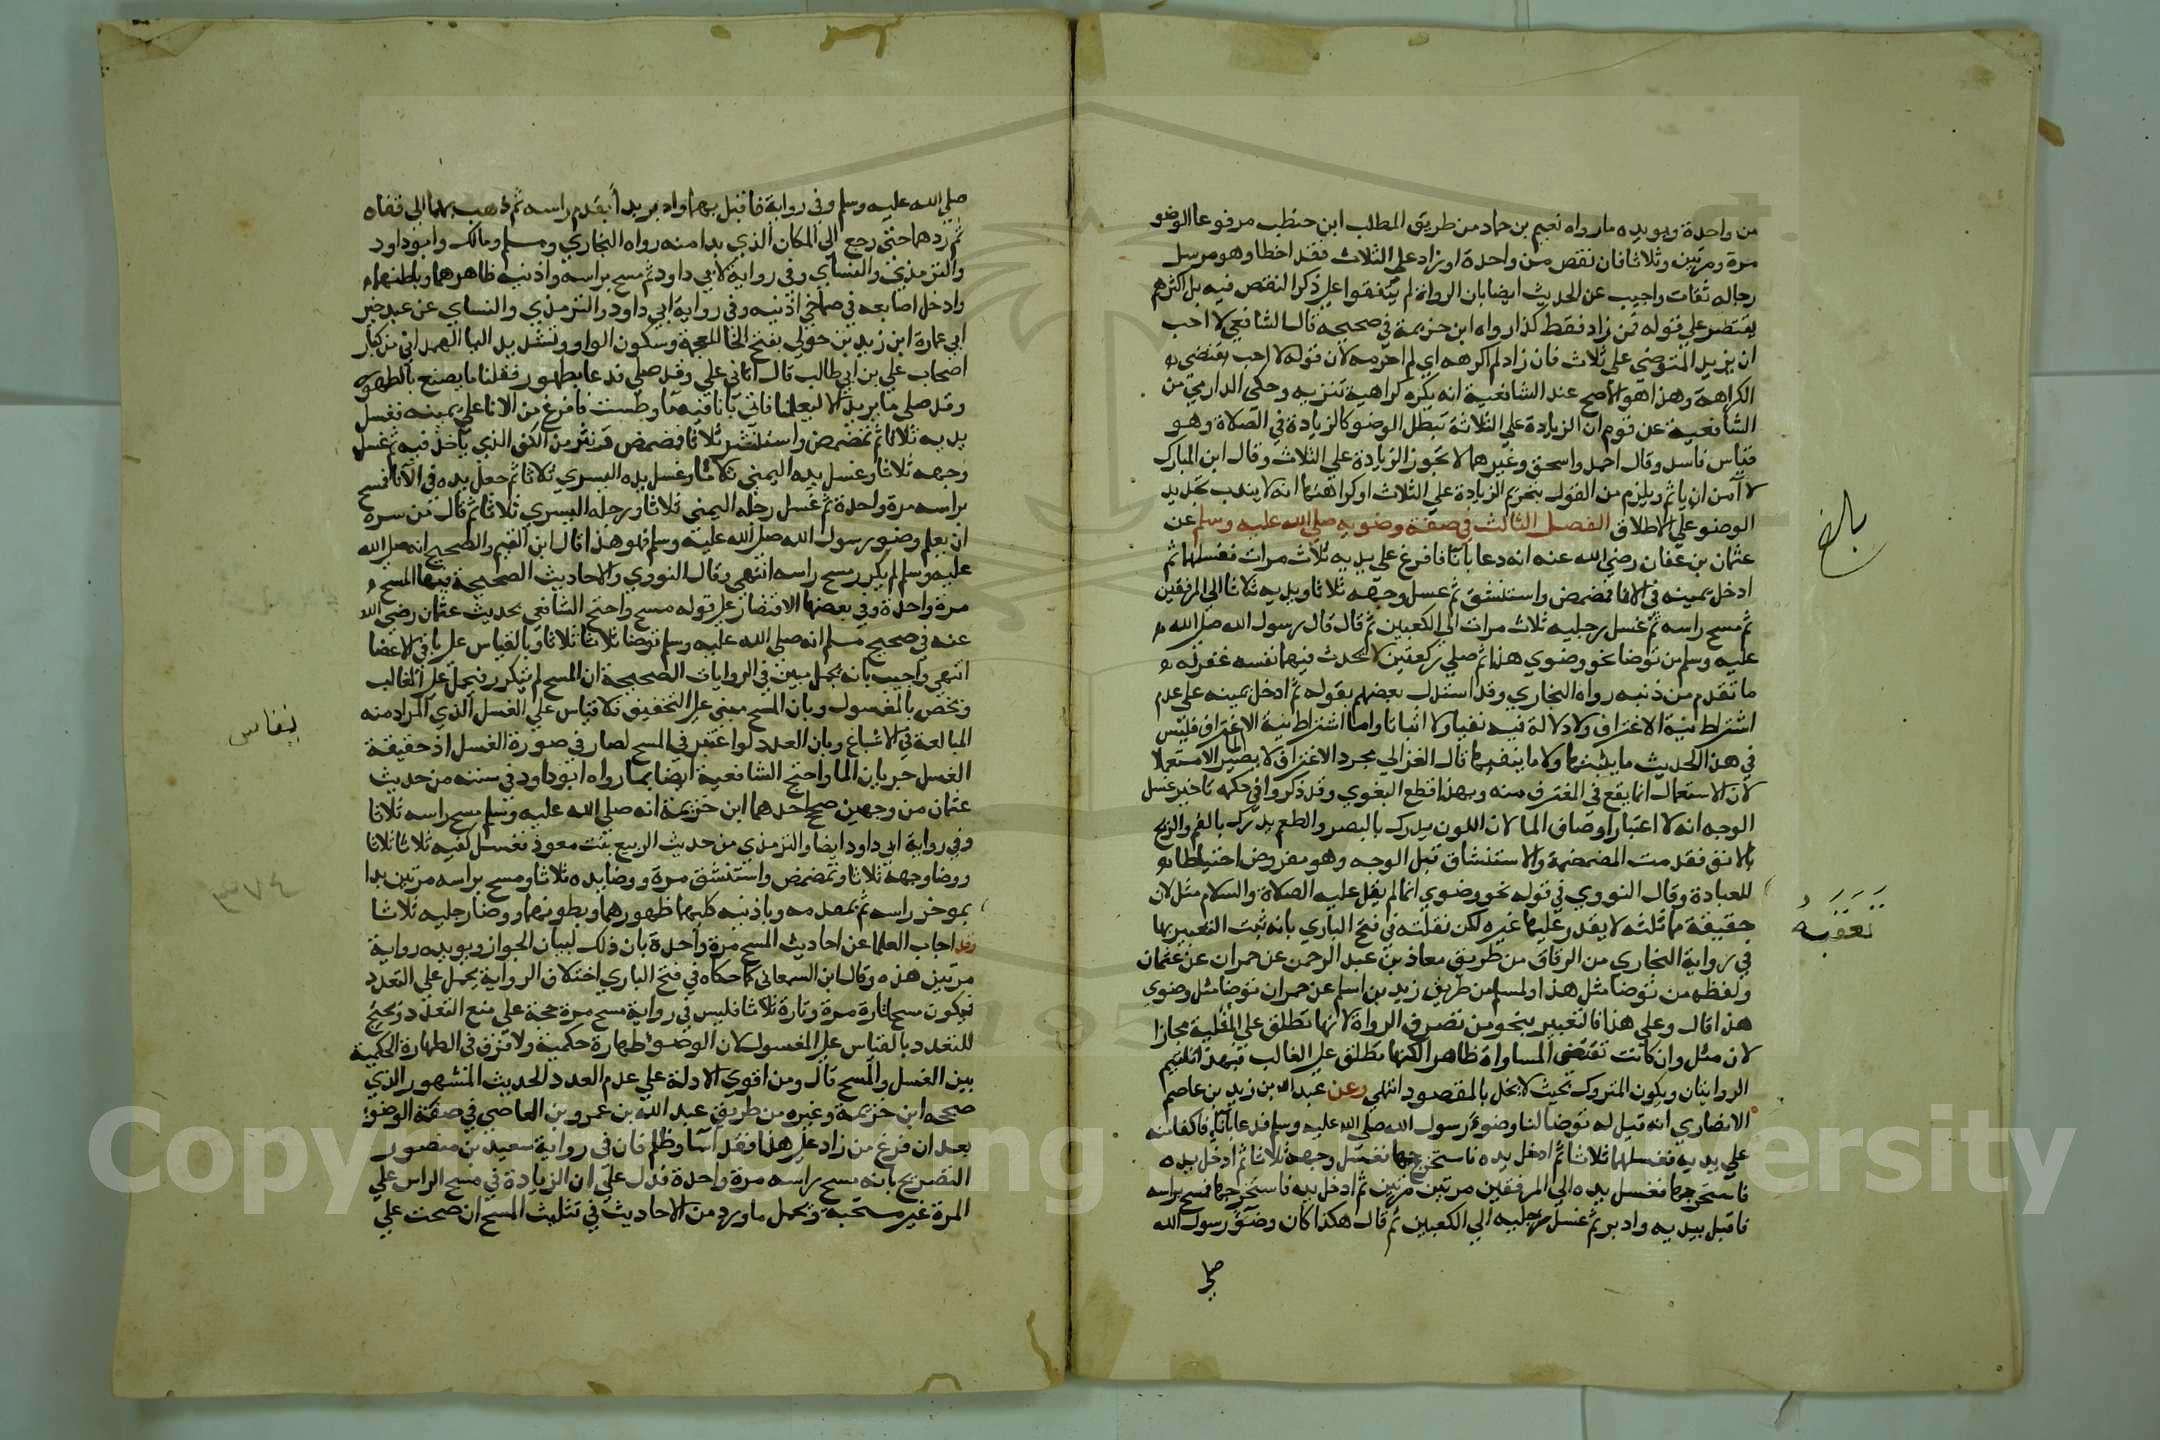 من واحدة ويويده ما رواه نعيم بن حماد من طريق المطلب ابن حنطب مرفوعا الوضو
مرة ومرتين وثلاثا فان نقص من واحدة او زاد على الثلاث فقد اخطا وهو مرسل
رجاله ثقات واجيب عن الحديث ايضا بان الرواة لم يتفقوا على ذكر النقص فيه بل اكثرهم
يقتصر على قوله فمن زاد فقط كذا رواه ابن خزيمة في صحيحه قال الشافعي لا احب
ان يزيد المتوضي على ثلاث فان زاد لم اكرهه اي لم احرمه لان قوله لا احب يقتضي
الكراهة وهذا هو الاصح عند الشافعية انه يكره كراهية تنزيه وحكى الدارمي من
الشافعية عن قوم ان الزيادة علي الثلاثة تبطل الوضو كالزيادة في الصلاة وهو
قياس فاسد وقال احمد واسحق وغيرهما لا تجوز الزيادة على الثلاث وقال ابن المبارك
لا آمن ان ياثم ويلزم من القول بتحريم الزيادة علي الثلاث او كراهتها انه لا يندب تجديد
الوضو على الاطلاق الفصل الثالث في صفة وضويه صلى الله عليه وسلم عن
عثمان بن عفان رضي الله عنه انه دعا باناء فافرغ على يديه ثلاث مرات فغسلهما ثم
ادخل يمينه في الانا فمضمض واستنشق ثم غسل وجهه ثلاثا ويديه ثلاثا الي المرفقين
ثم مسح راسه ثم غسل رجليه ثلاث مرات الي الكعبين ثم قال قال رسول الله صلى الله
عليه وسلم من توضا نحو وضوي هذا ثم صلي ركعتين لا يحدث فيهما نفسه غفر له
ما تقدم من ذنبه رواه البخاري وقد استدل بعضهم بقوله ثم ادخل يمينه على عدم
اشتراط نية الاغتراف ولا دلالة فيه نفيا ولا اثباتا واما اشتراط نية الاغتراف فليس
في هذا الحديث ما يثبتها ولا ما ينفيها قال الغزالي مجرد الاغتراف لا يصير الما مستعملا
لان الاستعمال انما يقع في المغترف منه وبهذا قطع البغوي وقد ذكروا في حكمة تاخير غسل
الوجه انه لاعتبار اوصاف الما لان اللون يدرك بالبصر والطعم يدرك بالفم والريح
بالانف فقدمت المضمضة والاستنشاق قبل الوجه وهو مفروض احتياطا
للعبادة وقال النووي في قوله نحو وضوي انما لم يقل عليه الصلاة والسلام مثل لان
حقيقة مماثلته لا يقدر عليها غيره لكن نقلته في فتح الباري بانه ثبت التعبير بها
في رواية البخاري من الرقاق من طريق معاذ بن عبد الرحمن عن حمران عن عثمان
ولفظه من توضا مثل هذا ولمسلم من طريق زيد بن اسلم عن حمران توضا مثل وضوي
هذا قال وعلي هذا فالتعبير بنحو من تصرف الرواة لانها تطلق علي المثلية مجازا
لان مثل وان كانت تقتضي المساواة ظاهرا لكنها تطلق على الغالب فبهذا تلتيم
الروايتان ويكون المتروك بحيث لا يخل بالمقصود انتهي وعن عبد الله بن زيد بن عاصم
الانصاري انه قيل له توضا لنا وضوء رسول الله صلى الله عليه وسلم فدعا باناء فاكفا منه
علي يديه فغسلهما ثلاثا ثم ادخل يده فاستخرجها فغسل وجهه ثلاثا ثم ادخل يده
فاستخرجها فغسل يده الي المرفقين مرتين مرتين ثم ادخل يده فاستخرجها فمسح براسه
فاقبل بيديه وادبر ثم غسل رجليه الي الكعبين ثم قال هكذا كان وضوء رسول الله
صلى
بلغ
تعقبه
صلى الله عليه وسلم وفي رواية فاقبل بهما وادبر بدأ بمقدم راسه ثم ذهب بهما الى قفاه
ثم ردهما حتى رجع الى المكان الذي بدا منه رواه البخاري ومسلم ومالك وابو داود
والترمذي والنساي وفي رواية لابي داود ثم مسح براسه واذنيه ظاهرهما وباطنهما
وادخل اصابعه في صماخي اذنيه وفي رواية ابي داود والترمذي والنساي عن عبد خير
ابي عمارة ابن زيد بن خولي بفتح الخا المعجمة وسكون الواو وتشديد اليا الهمداني من كبار
اصحاب علي بن ابي طالب قال اتاني علي وقد صلى فدعا بطهور فقلنا ما يصنع بالطهور
وقد صلى ما يريد الا ليعلمنا فاتي باناء فيه ماء وطست فافرغ من الانا علي يمينه فغسل
يديه ثلاثا ثم تمضمض واستنثر ثلاثا فمضمض ونثر من الكف الذي ياخذ فيه ثم غسل
وجهه ثلاثا وغسل يده اليمني ثلاثا وغسل يده اليسري ثلاثا ثم جعل يده في الانا فمسح
براسه مرة واحدة ثم غسل رجله اليمني ثلاثا ورجله اليسري ثلاثا ثم قال من سره
ان يعلم وضو رسول الله صلى الله عليه وسلم فهو هذا قال ابن القيم والصحيح انه صلى الله
عليه وسلم لم يكرر مسح راسه انتهي وقال النووي والاحاديث الصحيحة فيها المسح
مرة واحدة وفي بعضها الاقتصار على قوله مسح واحتج الشافعي بحديث عثمان رضي الله
عنه في صحيح مسلم انه صلى الله عليه وسلم توضا ثلاثا ثلاثا وبالقياس على باقي الاعضا
انتهي واجيب بانه مجمل مبين في الروايات الصحيحة ان المسح لم يتكرر فيحمل على الغالب
ويخص بالمغسول وبان المسح مبني على التخفيف فلا يقاس علي الغسل الذي المراد منه
المبالغة في الاسباغ وبان العدد لو اعتبر في المسح لصار في صورة الغسل اذ حقيقة
الغسل جريان الما واحتج الشافعية ايضا بما رواه ابو داود في سننه من حديث
عثمان من وجهين صحح احدهما ابن خزيمة انه صلى الله عليه وسلم مسح راسه ثلاثا
وفي رواية ابي داود ايضا والترمذي من حديث الربيع بنت معوذ فغسل كفيه ثلاثا ثلاثا
ووضا وجهه ثلاثا وتمضمض واستنشق مرة ووضا يده ثلاثا ومسح براسه مرتين بدا
بموخر راسه ثم بمقدمه وباذنيه كليهما ظهورهما وبطونهما ووضا رجليه ثلاثا
وقد اجاب العلما عن احاديث المسح مرة واحدة بان ذلك لبيان الجواز ويويده رواية
مرتين هذه وقال ابن السمعاني كما حكاه في فتح الباري اختلاف الرواية يحمل علي التعدد
فيكون مسح تارة مرة وتارة ثلاثا فليس في رواية مسح مرة حجة علي منع التعدد ويحتج
للتعدد بالقياس على المغسول لان الوضو طهارة حكمية ولا فرق في الطهارة الحكمية
بين الغسل والمسح قال ومن اقوي الادلة علي عدم العدد الحديث المشهور الذي
صححه ابن خزيمة وغيره من طريق عبد الله بن عمرو بن العاصي في صفة الوضو
بعد ان فرغ من زاد على هذا فقد اسا وظلم فان في رواية سعيد بن منصور
التصريح بانه مسح براسه مرة واحدة فدل علي ان الزيادة في مسح الراس علي
المرة غير مستحبة ويحمل ما ورد من الاحاديث في تثليث المسح ان صحت علي
يقاس
٣٧٤
Copyright King University